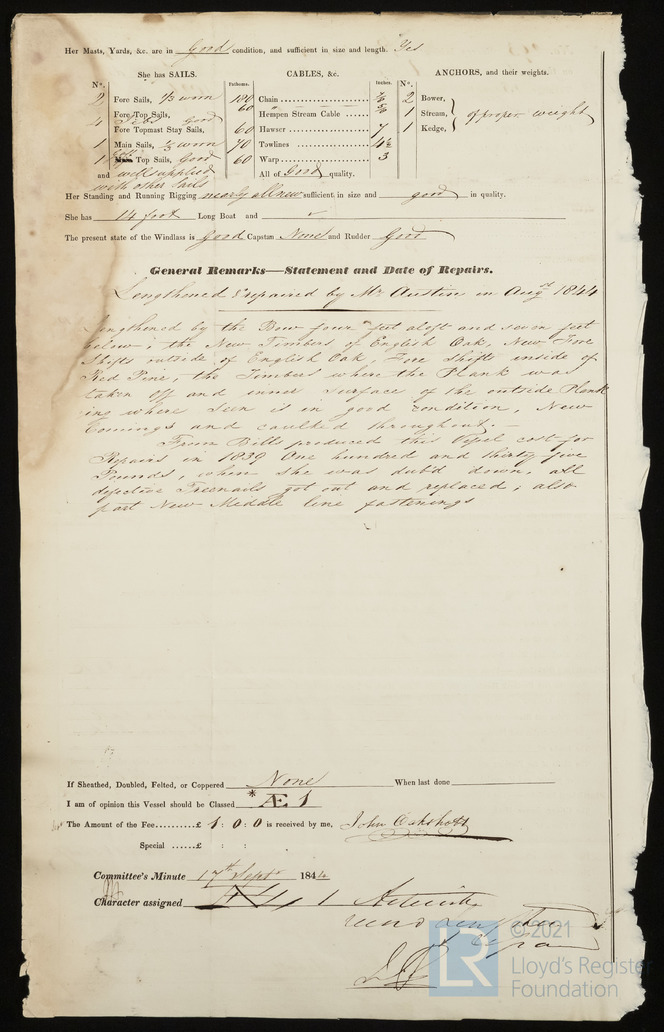 Her Masts, Yards, &c. are in Good condition, and sufficient in size and length. Yes
She has SAILS.
CABLES, &c.
ANCHORS, and their weights.
No.
Fathoms.
Inches.
No.
2 Fore Sails, 1/3 worn
Fore Top Sails,
4 Jibs Good
Fore Topmast Stay Sails,
1 Main Sails, 1/3 worn
1 Top Sails, Good
and well supplied
with other Sails
Chain
60 Hempen Stream Cable
60 Hawser 7
70 Towlines
60 Warp 3
All of Good quality.
2 Bower,
1 Stream, of proper weight
1 Kedge,
Her Standing and Running Rigging nearly all new sufficient in size and good in quality.
She has 14 foot Long Boat and
The present state of the Windlass is Good Capstan None and Rudder Good
General Remarks—Statement and Date of Repairs.
Lengthened & repaired by Mr Austin in Augst 1844
Lengthened by the Bow four feet aloft and seven feet
below, the New Timbers of English Oak, New Fore
Shifts outside of English Oak, Fore Shifts inside of
Red Pine, the Timbers where the Plank was
taken off and inner surface of the outside Plank
ing where seen is in good condition, New
Comings and caulked throughout.
From Bills produced this Vessel cost for
Repairs in 1839 One hundred and thirty five
Pounds, when she was dub'd down, all
defective Treenails got out and replaced, also
part New Middle line fastenings
If Sheathed, Doubled, Felted, or Coppered None When last done
I am of opinion this Vessel should be Classed * Æ 1
The Amount of the Fee..........£ 1 : 0 : 0 is received by me, John Oakshott
Special ......£ : :
Committee's Minute 17th Sept 1844
Character assigned
© 2021
LR
Lloyd's Register
Foundation